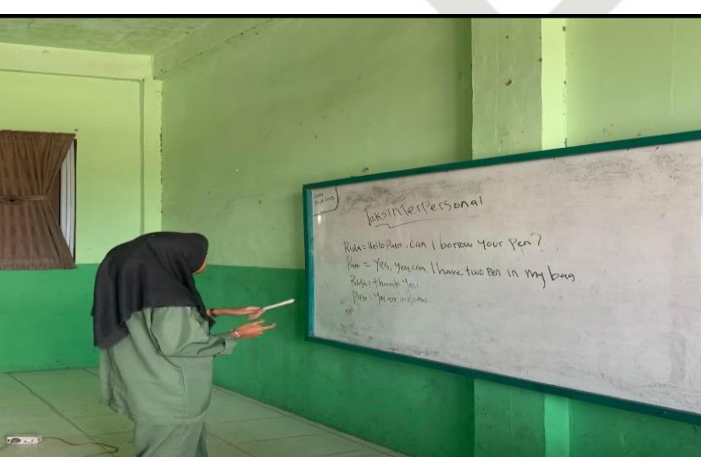 TeksInterPersonal
Rida= Hello Putri. Can I borrow your Pen?
= Yes, you can I have two Pen in my bag
Rida= thank you
Putri= You are welcome